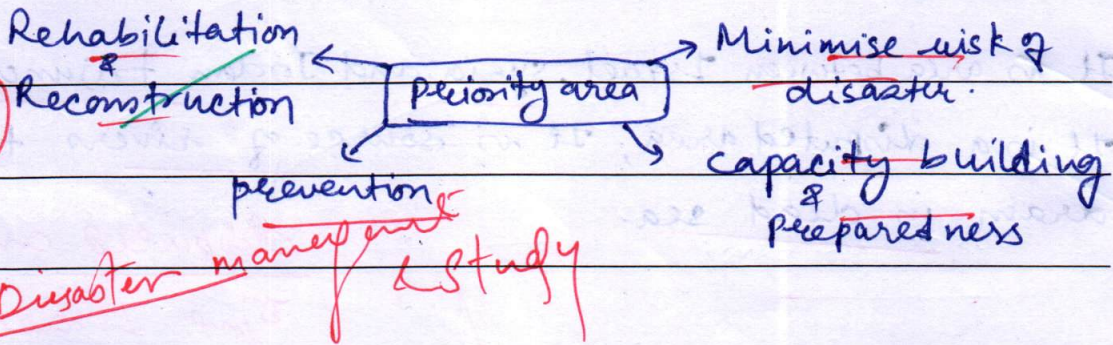 Rehabilitation
&
Reconstruction
Priority area
Minimise risk of
disaster.
prevention
capacity building
&
preparedness
Disaster management
& Study